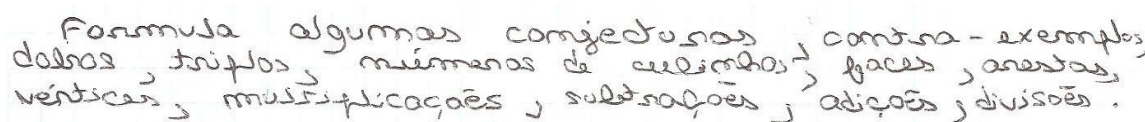 Formula algumas conjecturas, contra-exemplos,
dobros, triplos, números de cubinhos, faces, arestas,
vértices, multiplicações, subtrações, adições, divisões.